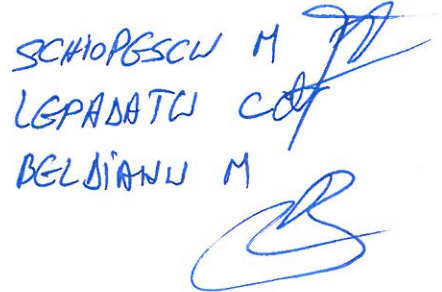 SCHIOPESCU M
LEPADATU C
BELDIANU M